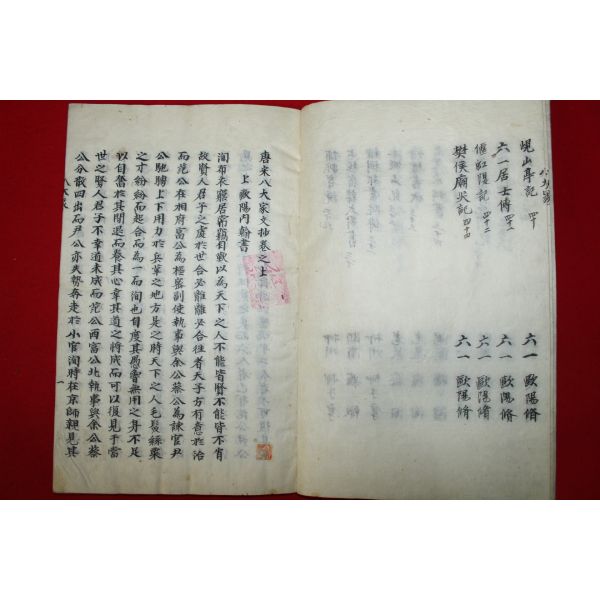 峴山亭記 四十 六一 歐陽脩
六一居士傳 四十一 六一 歐陽脩
偃虹隄記 四十二 六一 歐陽脩
樊侯廟災記 四十四 六一 歐陽脩
唐宋八大家文抄卷之上
上歐陽內翰書
洵布衣窮居常竊自歎以為天下之人不能皆賢不能皆不肖
故賢人君子之處於世合必離離必合往者天子方有意於治
而范公在相府富公為樞密副使執事與余公蔡公為諫官尹
公馳騁上下用力於兵革之地方是之時天下之人毛髮絲粟
之才紛紛而起合而為一而洵也自度其愚魯無用之身不足
以自奮於其間退而養其心幸其道之將成而可以復見于當
世之賢人君子不幸道未成而范公西富公北執事與余公蔡
公分散四出而尹公亦失勢奔走於小官洵時在京師親見其